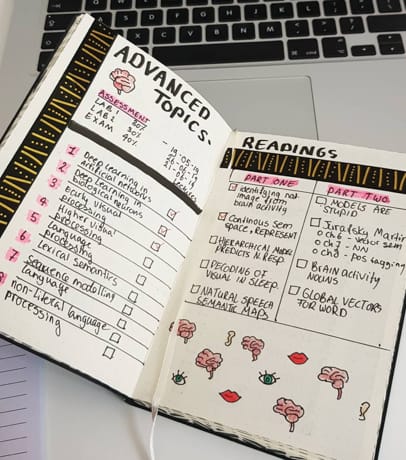 ADVANCED
TOPICS.
ASSESSMENT
LAB 1 30%
LAB 2 30%
EXAM 40%
1 Deep learning in
artificial networks
2 Deep learning in
biological neurons
3 Early visual
processing
4 Higher visual
processing
5 language
processing
6 Lexical semantics
7 sequence modelling
language
8 non-literal language
processing
READINGS
PART ONE
Identifying nat
image from
brain activity
Continuous sem
space, REPRESENT
HIERARCHICAL MODEL
PREDICTS N RESP
DECODING OF
VISUAL IN SLEEP.
NATURAL SPEECH
SEMANTIC MAPS
PART TWO
MODELS ARE
STUPIDS
Jurafsky Martin
ch6 - vector sem
ch7 - NN
ch8 - pos tagging
BRAIN activity
NOUNS
GLOBAL VECTORS
FOR WORD